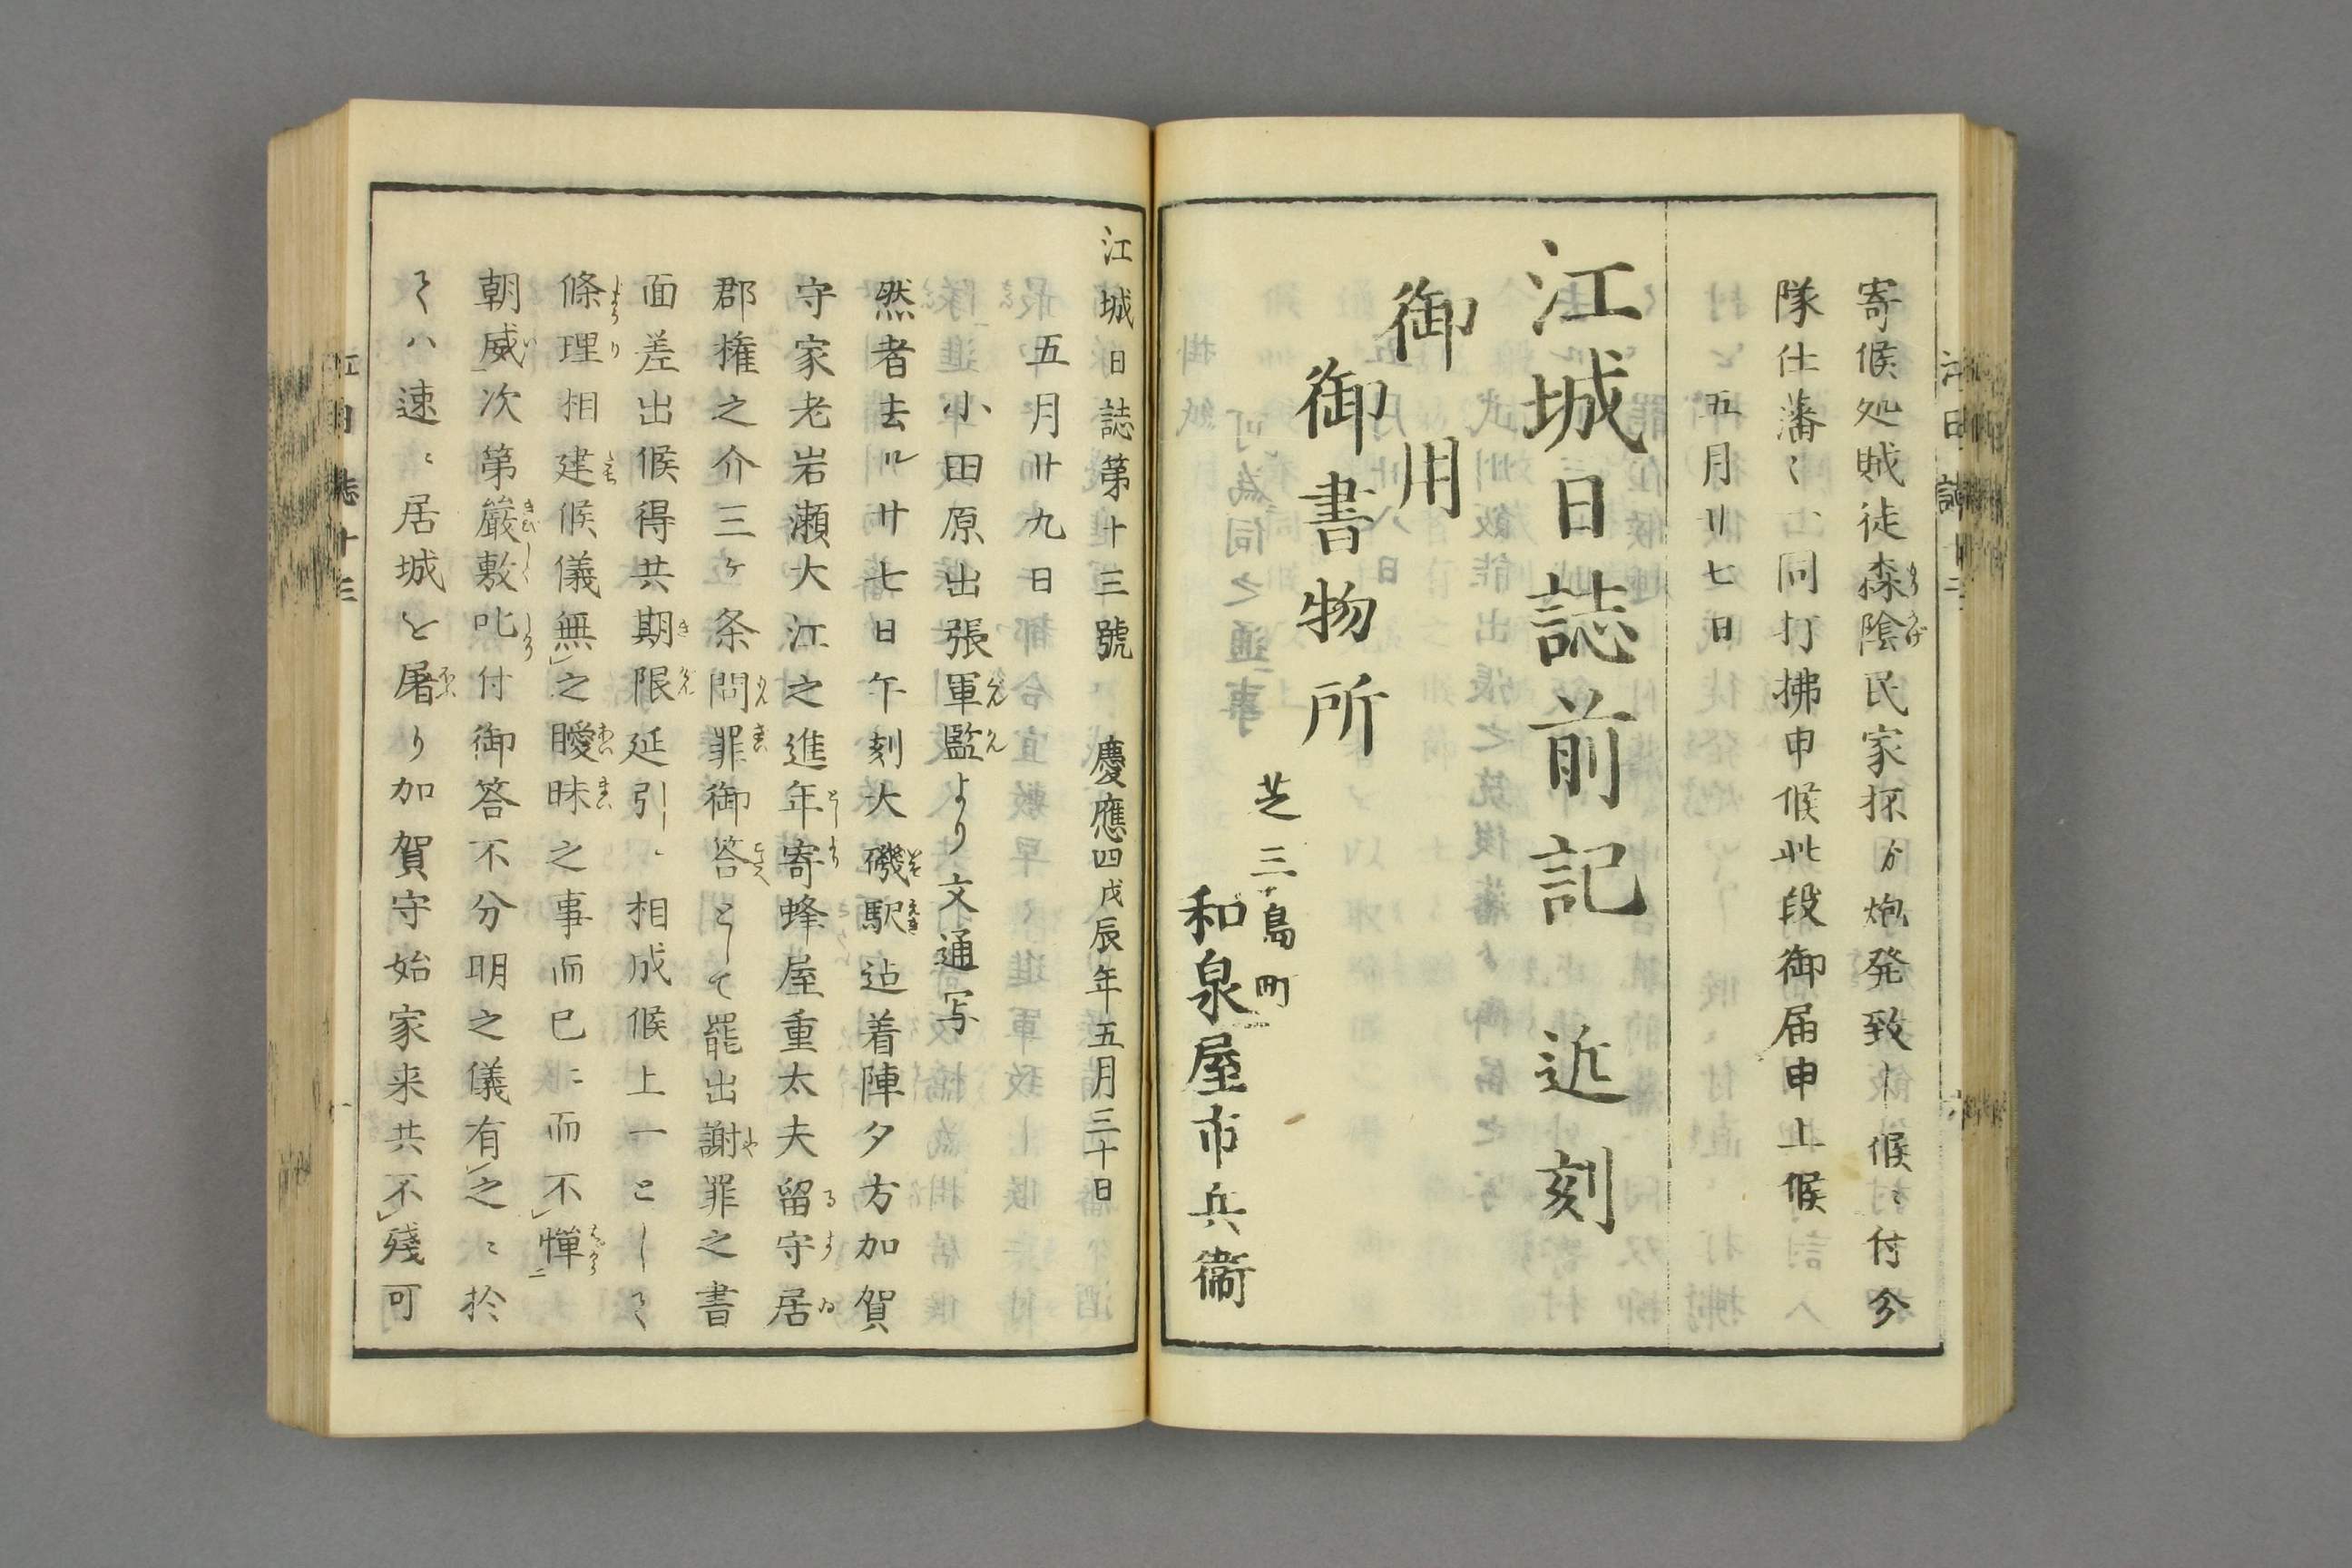 寄候処賊徒森陰民家ゟ炮発致し候ニ付分
隊仕藩々一同打拂申候此段御届申上候
五月廿七日
江城日誌前記 近刻
御用
御書物所
芝三島町
和泉屋市兵衞
江城日誌第十三號 慶應四戊辰年五月三十日
五月廿九日
小田原出張軍監より文通写
然者去ル廿七日午刻大磯駅迠着陣夕方加賀
守家老岩瀬大江之進年寄蜂屋重太夫留守居
郡権之介三ヶ条問罪御答として罷出謝罪之書
面差出候得共期限延引ニ相成候上一としてく
條理相建候儀無之曖昧之事而已ニ而不憚
朝威次第嚴敷叱付御答不分明之儀有之ニ於
てハ速ニ居城を屠り加賀守始家来共不殘可
江日誌十三